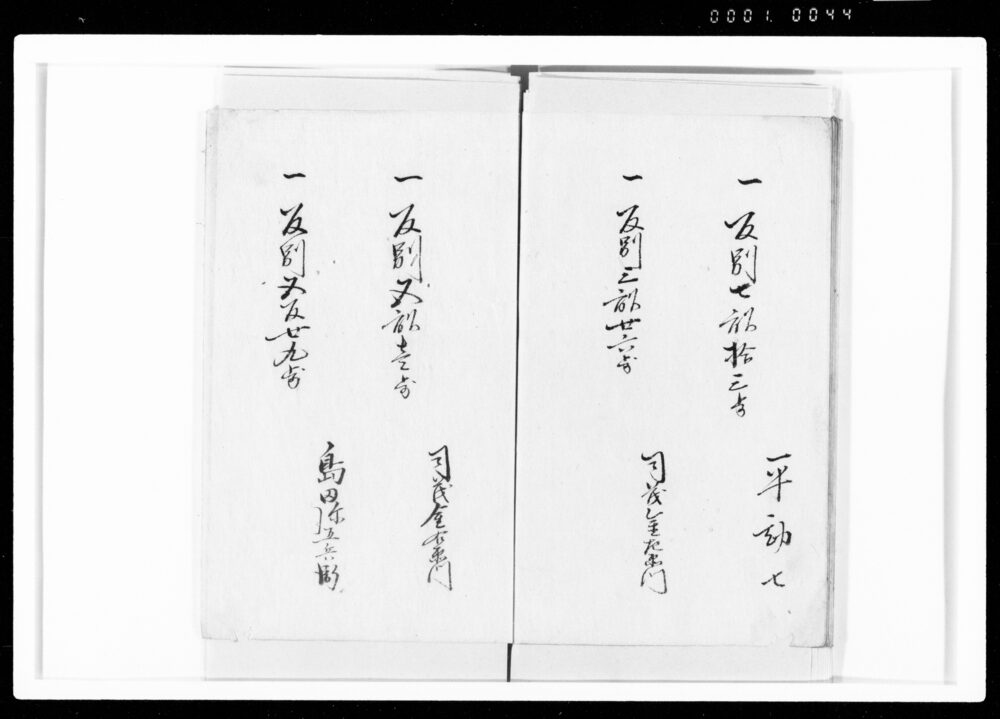 0001. 0044
一 反別七畝拾三歩
平 勘七
一 反別三畝廿六歩
司茂金左衛門
一 反別五畝壱歩
司茂金右衛門
一 反別五反廿九歩
島田 五兵衛